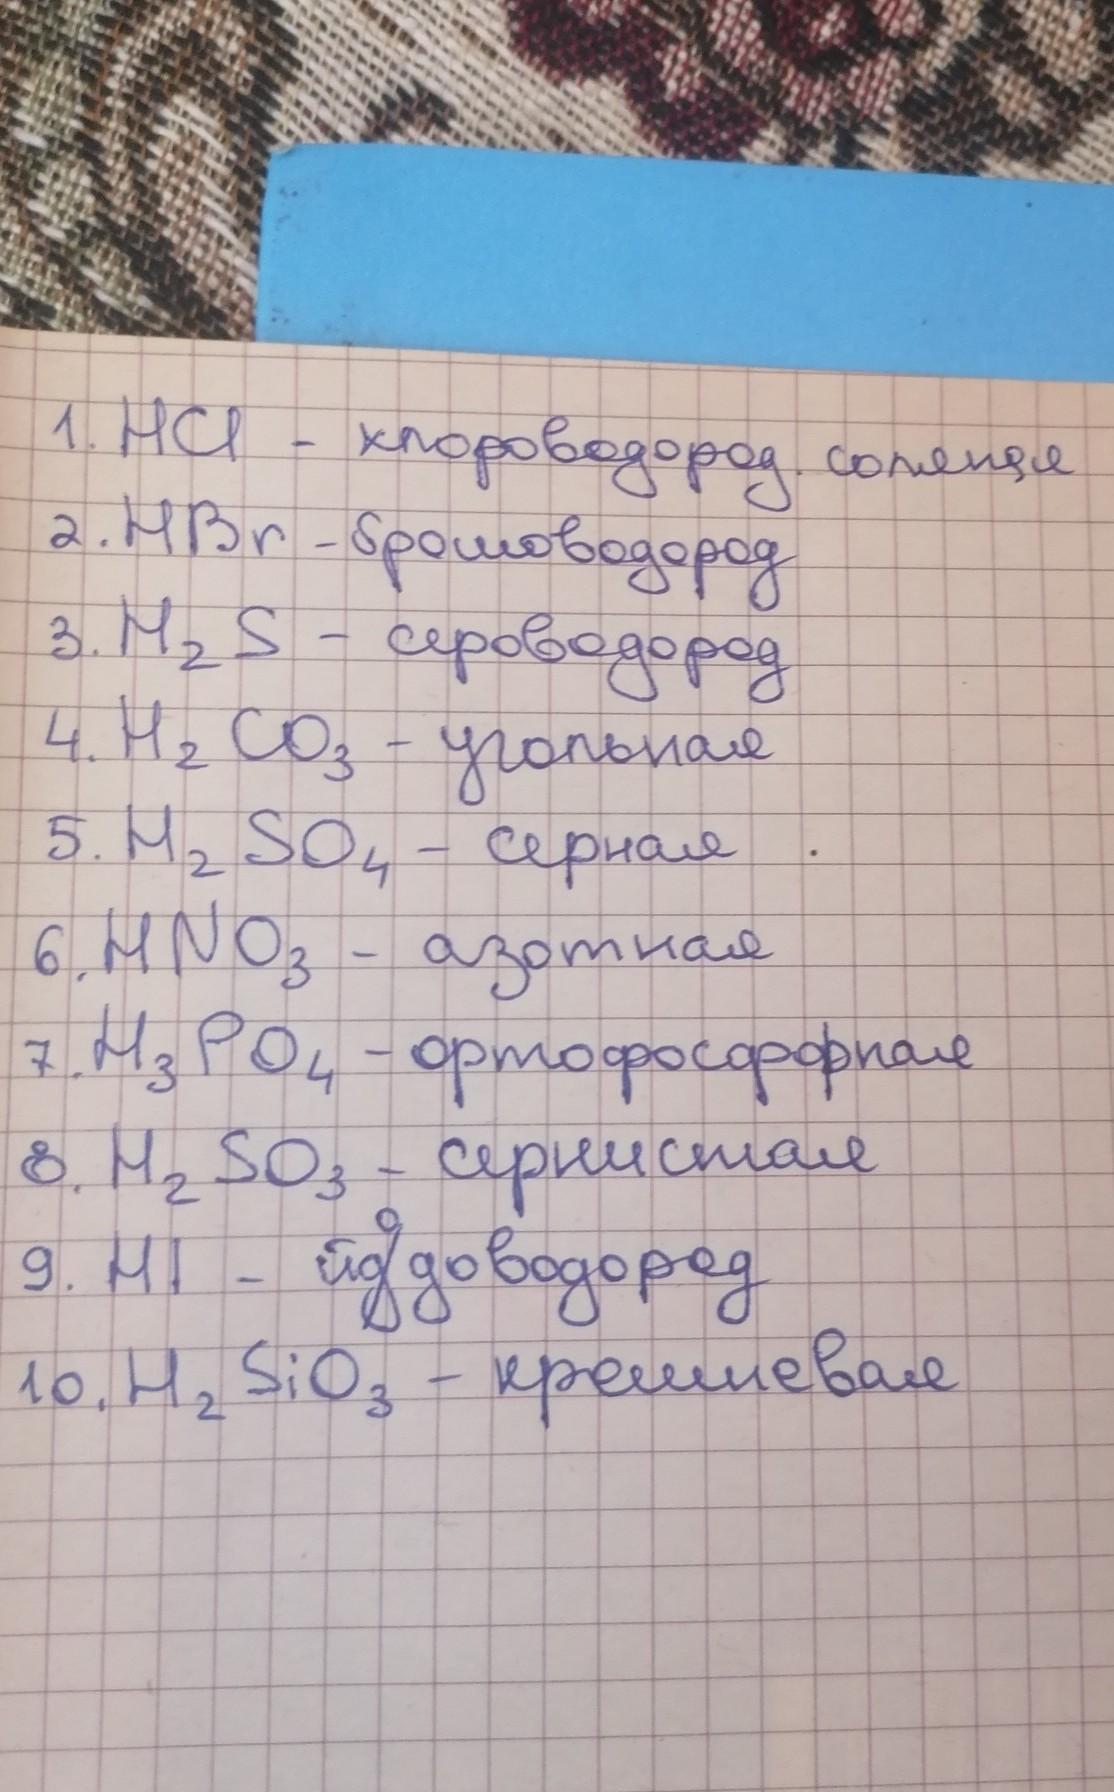 1. HCl - хлороводород. соляная
2. HBr - бромоводород
3. H₂S - сероводород
4. H₂CO₃ - угольная
5. H₂SO₄ - серная
6. HNO₃ - азотная
7. H₃PO₄ - ортофосфорная
8. H₂SO₃ - сернистая
9. HI - йодоводород
10. H₂SiO₃ - кремниевая